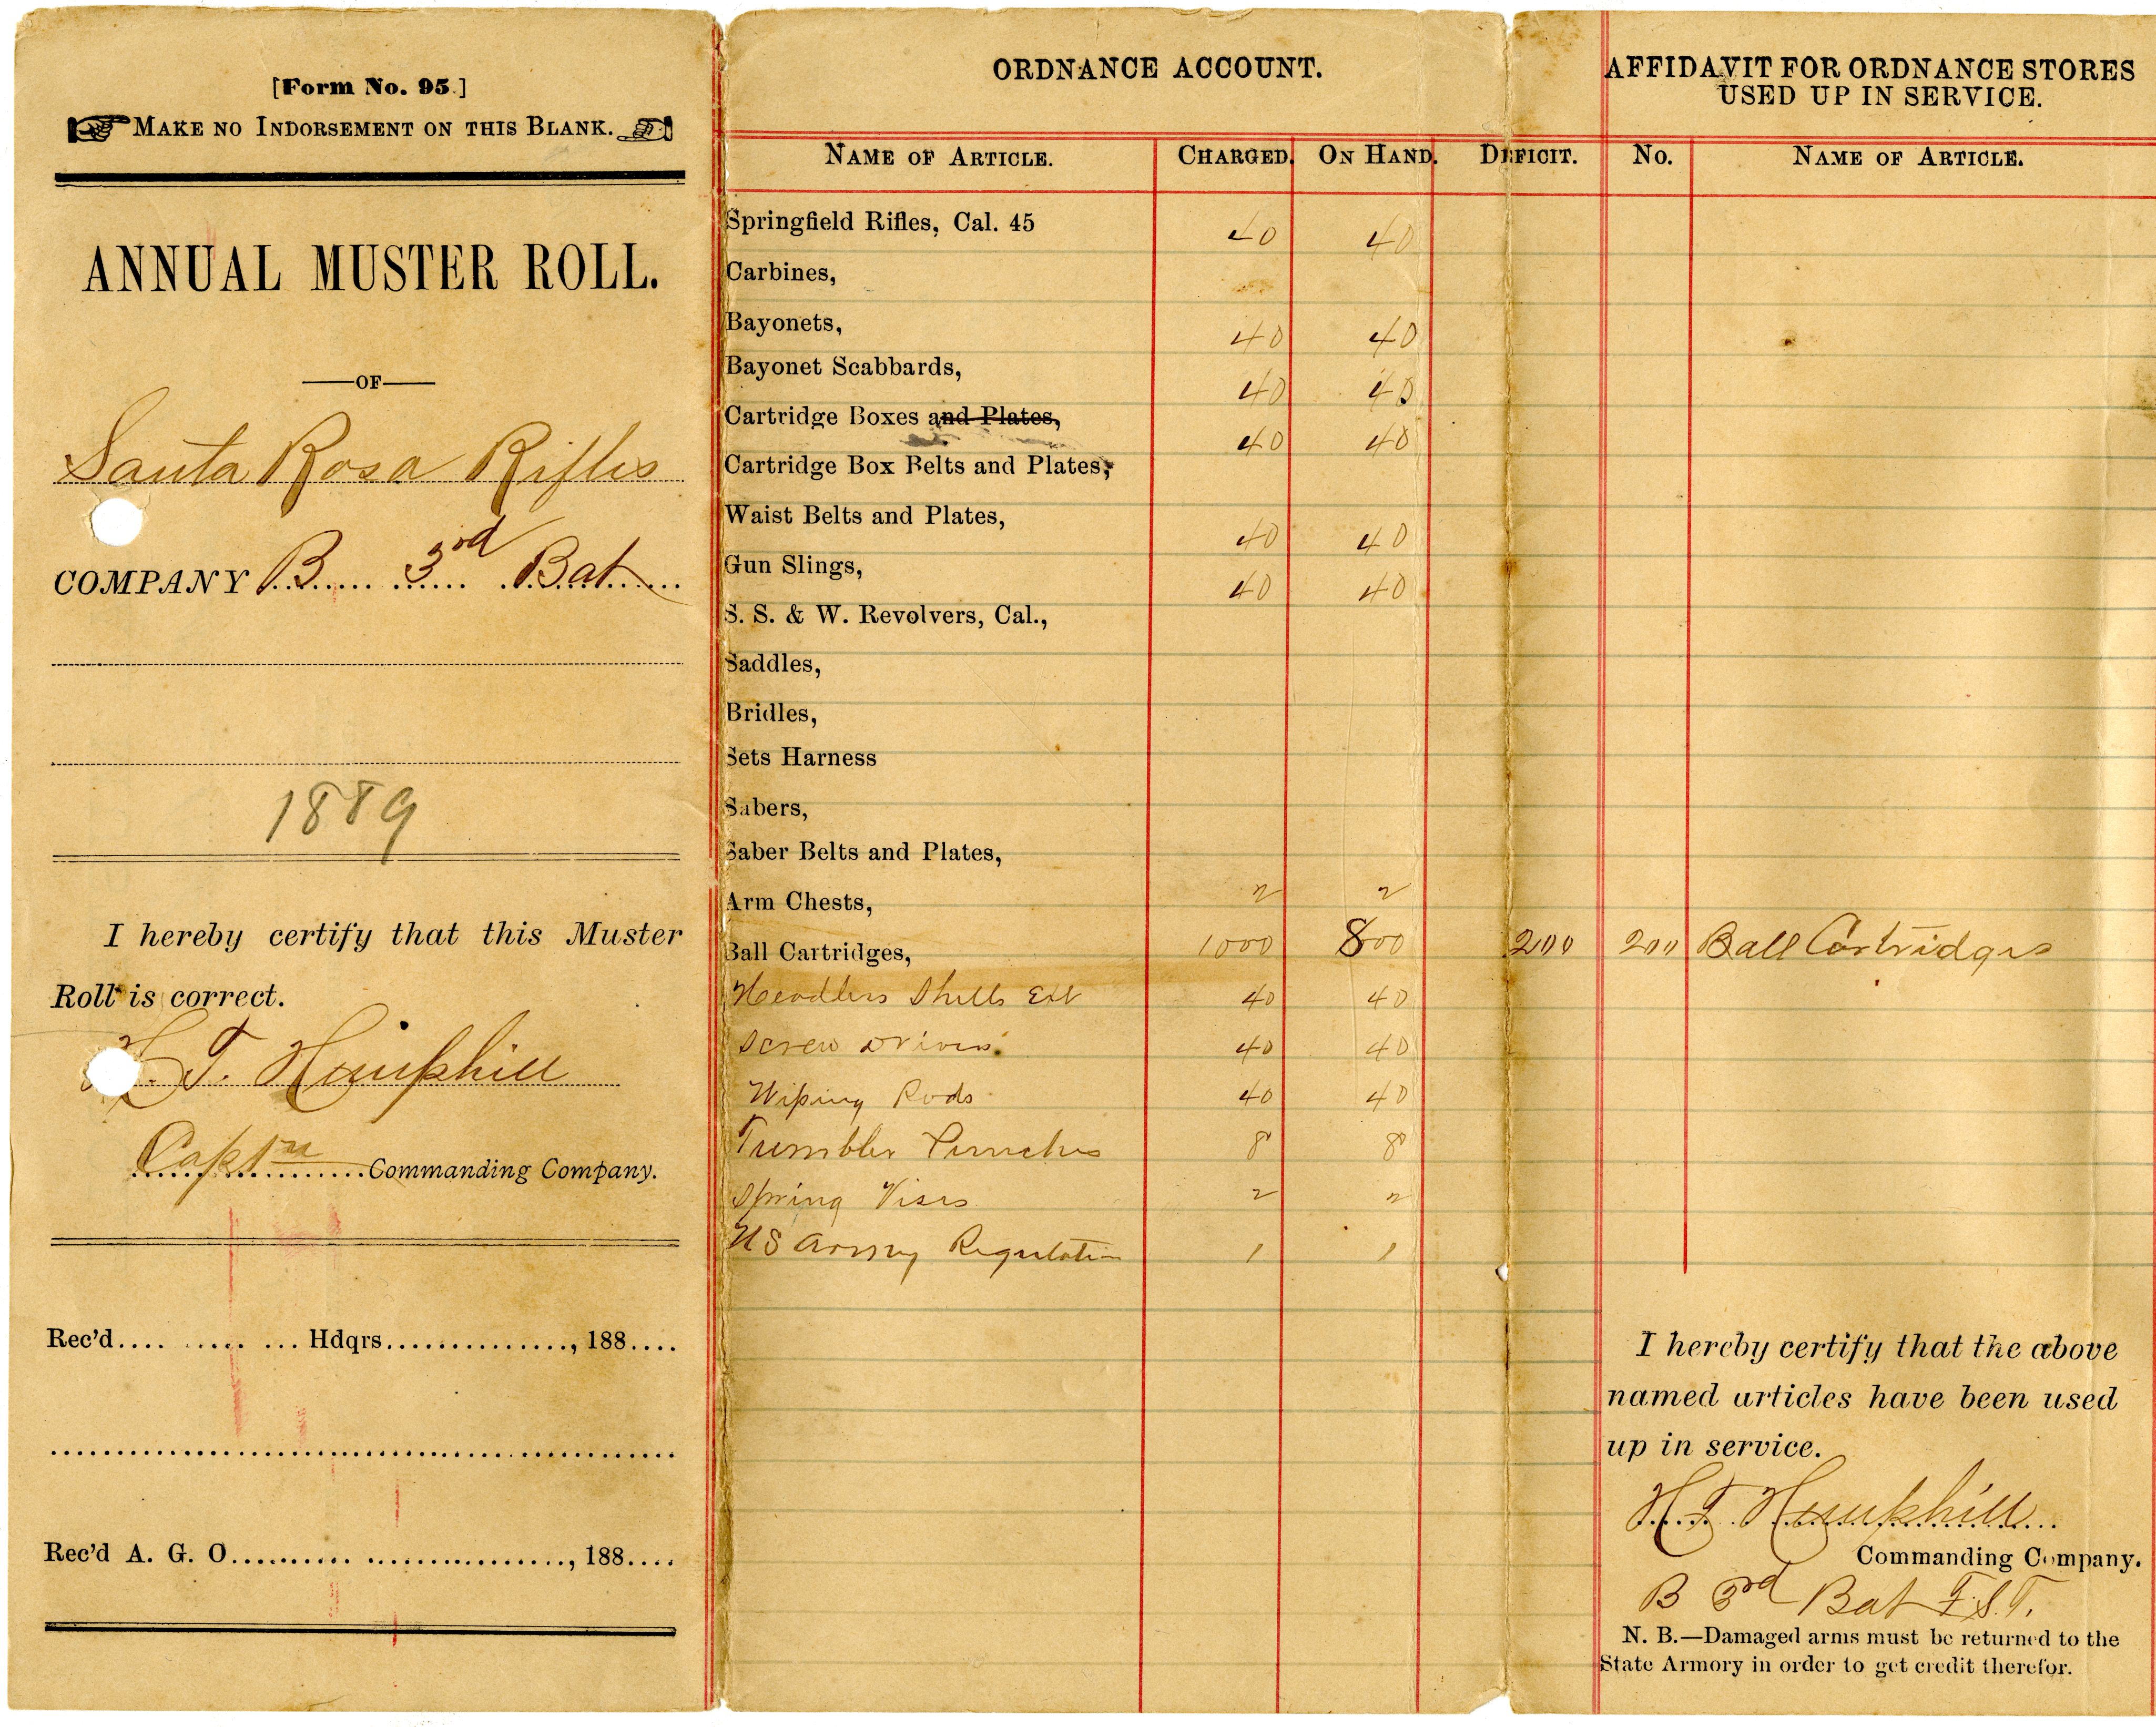 [Form No. 95.]
MAKE NO INDORSEMENT ON THIS BLANK.
ANNUAL MUSTER ROLL.
—OF—
Santa Rosa Rifles
COMPANY B 3rd Bat
1889
I hereby certify that this Muster
Roll is correct.
H. T. Hemphill
Captn Commanding Company.
Rec'd.... ..... ... Hdqrs..............., 188....
Rec'd A. G. O.......... ................, 188....
ORDNANCE ACCOUNT.
NAME OF ARTICLE. CHARGED. ON HAND. DEFICIT.
Springfield Rifles, Cal. 45 40 40
Carbines,
Bayonets, 40 40
Bayonet Scabbards, 40 40
Cartridge Boxes and Plates, 40 40
Cartridge Box Belts and Plates,
Waist Belts and Plates, 40 40
Gun Slings, 40 40
S. S. & W. Revolvers, Cal.,
Saddles,
Bridles,
Sets Harness
Sabers,
Saber Belts and Plates,
Arm Chests, 2 2
Ball Cartridges, 1000 800 200
Headless Shells Ext 40 40
Screw Drivers 40 40
Wiping Rods 40 40
Tumbler Punches 8 8
Spring Vises 2 2
US Army Regulation 1 1
AFFIDAVIT FOR ORDNANCE STORES
USED UP IN SERVICE.
NO. NAME OF ARTICLE.
200 Ball Cartridges
I hereby certify that the above
named articles have been used
up in service.
H. T. Hemphill
Commanding Company.
B 3rd Bat F.S.T.
N. B.—Damaged arms must be returned to the
State Armory in order to get credit therefor.